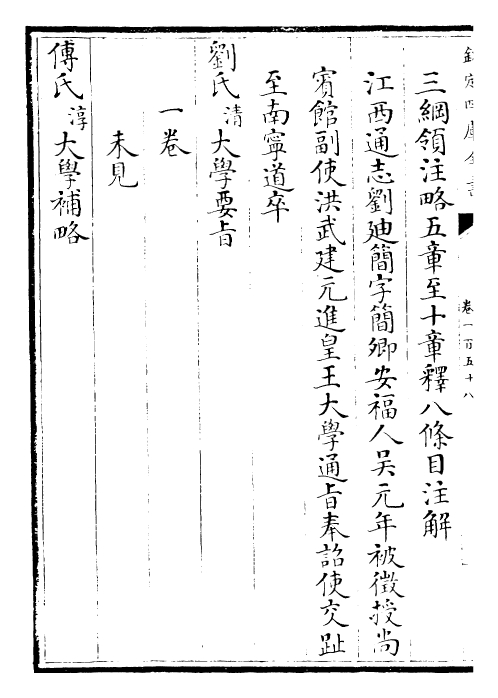 欽定四庫全書
卷一百五十八
三綱領注略五章至十章釋八條目注解
江西通志劉廸簡字簡卿安福人吳元年被徵授尚
賓館副使洪武建元進皇王大學通旨奉詔使交趾
至南寧道卒
劉氏清大學要旨
一卷
未見
傅氏淳大學補略